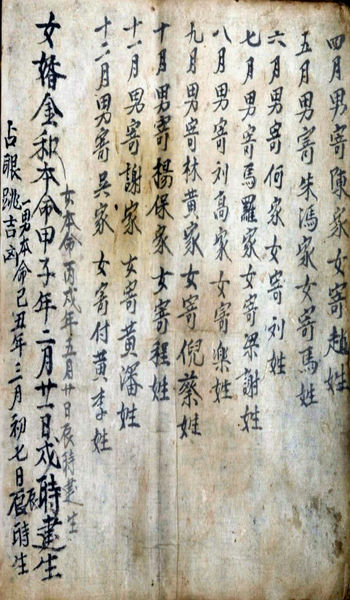 四月男寄陳家女寄趙姓
五月男寄朱馮家女寄馬姓
六月男寄何家女寄刘姓
七月男寄馬羅家女寄梁謝姓
八月男寄刘高家女寄樂姓
九月男寄林黄家女寄倪蔡姓
十月男寄楊保家女寄程姓
十一月男寄謝家女寄黄潘姓
十二月男寄吳家女寄付黄李姓
女本命丙戌年五月廿日辰時建生
女婚金和本命甲子年二月廿一日戌時建生
男本命己丑年三月初七日辰時生
占眼跳吉凶